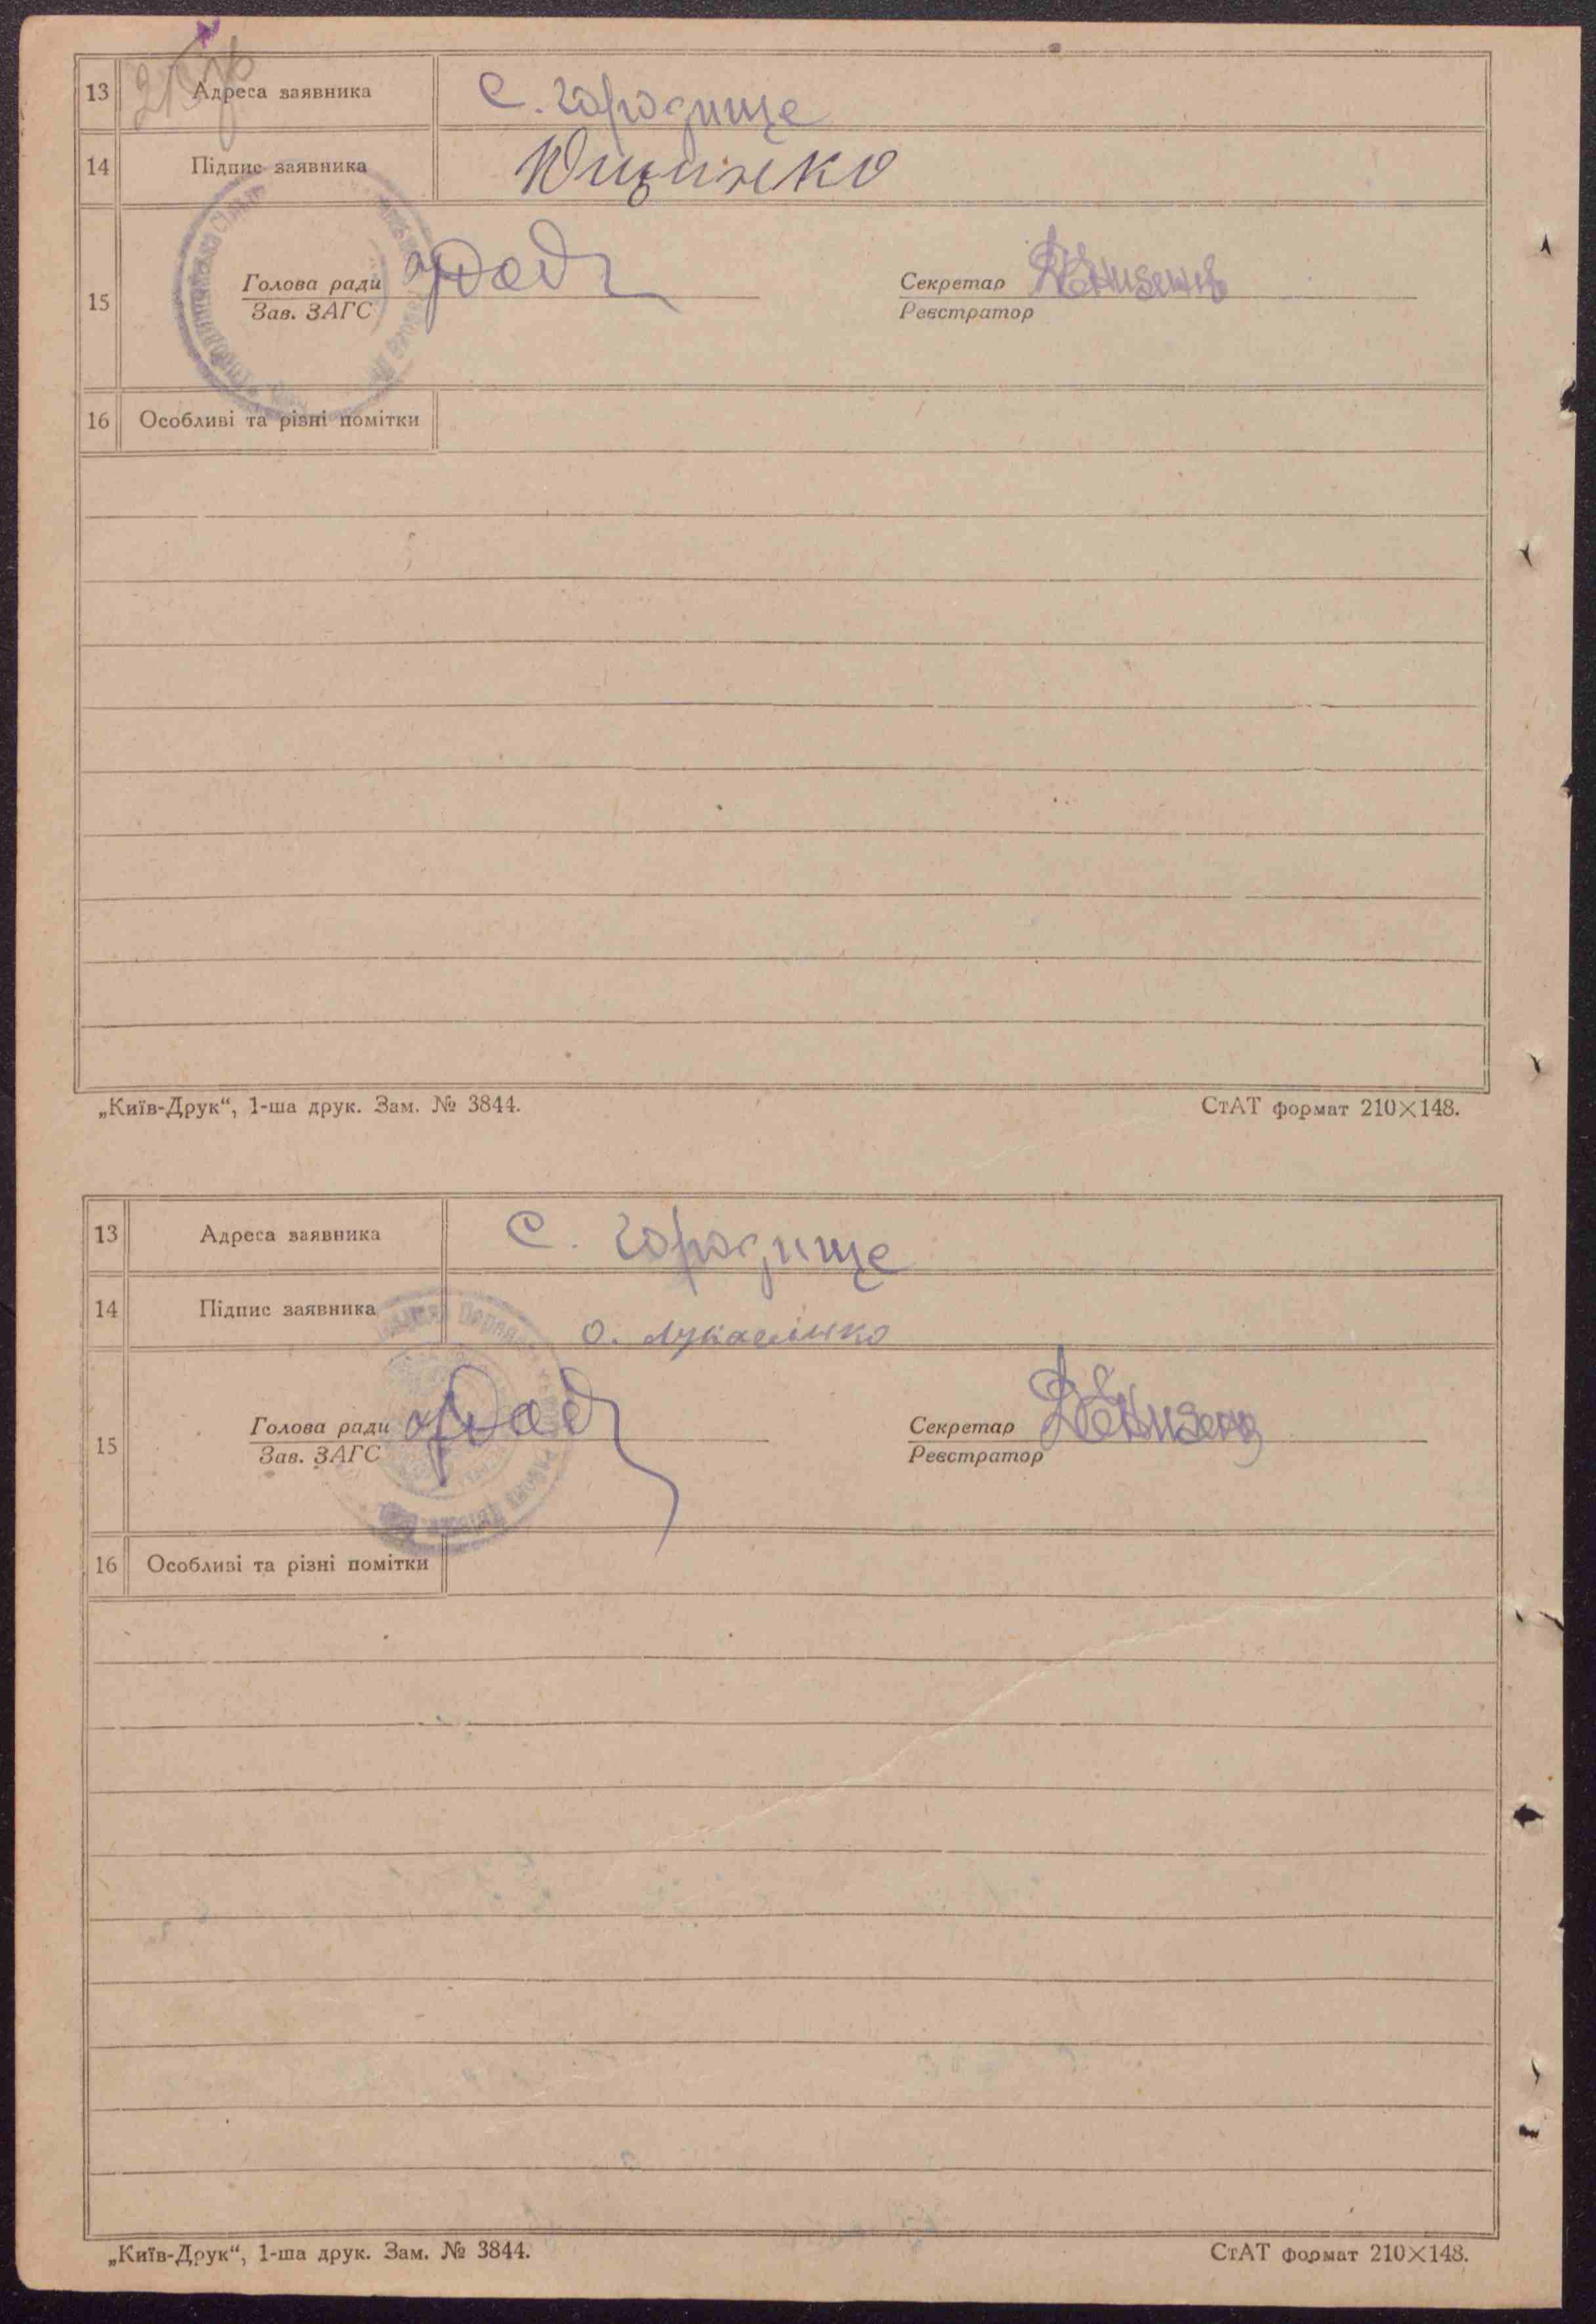 13 Адреса заявника с. городище
14 Підпис заявника
15 Голова ради Секретар
Зав. ЗАГС Реєстратор
16 Особливі та різні помітки
„Київ-Друк“, 1-ша друк. Зам. № 3844. СтАТ формат 210×148.
13 Адреса заявника с. городище
14 Підпис заявника О. Лукашенко
15 Голова ради Секретар
Зав. ЗАГС Реєстратор
16 Особливі та різні помітки
„Київ-Друк“, 1-ша друк. Зам. № 3844. СтАТ формат 210×148.